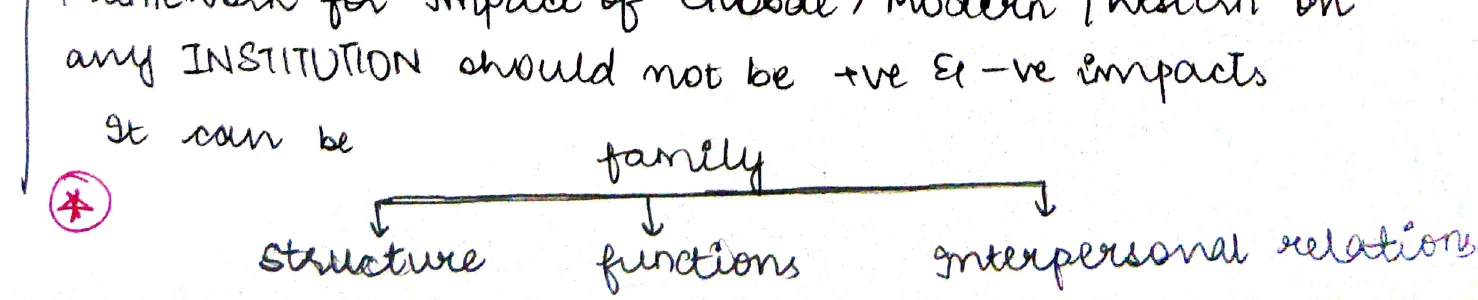 Framework for impact of Global / Modern / Western on
any INSTITUTION should not be +ve & -ve impacts
It can be
family
structure functions Interpersonal relations